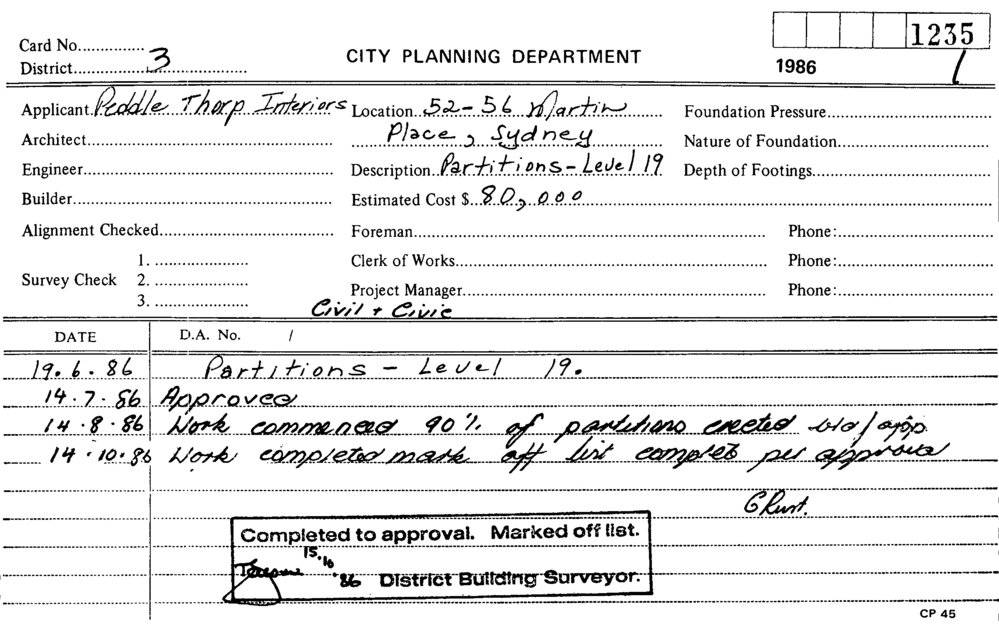 Card No...............
1235
District........3........
CITY PLANNING DEPARTMENT
1986 /
Applicant Peddle Thorp Interiors Location 52-56 Martin Foundation Pressure
Architect Place, Sydney Nature of Foundation
Engineer Description Partitions - Level 19 Depth of Footings
Builder Estimated Cost $ 80,000
Alignment Checked Foreman Phone:
1. Clerk of Works Phone:
Survey Check 2.
3. Project Manager Phone:
Civil + Civic
DATE D.A. No. /
19.6.86 Partitions - Level 19.
14.7.86 Approved
14.8.86 Work commenced 90% of partitions erected
14.10.86 Work completed mark off list complet per approval
Completed to approval. Marked off list.
15.10.86 District Building Surveyor.
CP 45